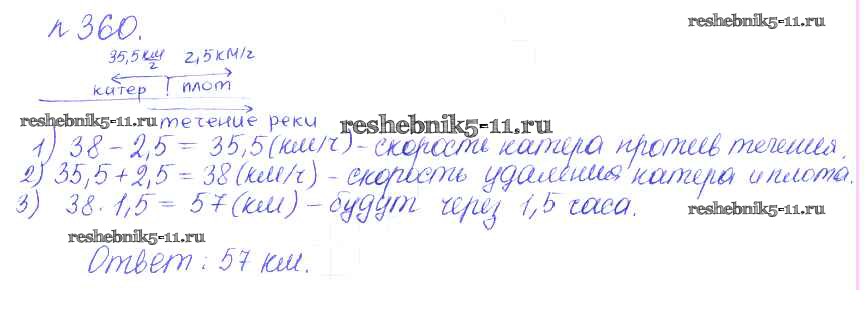 reshebnik5-11.ru
n 360.
35,5 км/ч 2,5 км/ч
катер плот
reshebnik5-11.ru течение реки
reshebnik5-11.ru
1) 38 - 2,5 = 35,5 (км/ч) - скорость катера против течения.
2) 35,5 + 2,5 = 38 (км/ч) - скорость удаления катера и плота.
3) 38 · 1,5 = 57 (км) - будут через 1,5 часа.
reshebnik5-11.ru
reshebnik5-11.ru
Ответ: 57 км.
reshebnik5-11.ru